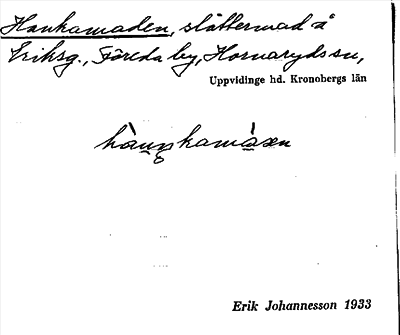 Hankamaden, slåttermad å
Eriksg., Föreda by, Hornaryds sn,
Uppvidinge hd. Kronobergs län
hàuŋkamàsen
Erik Johannesson 1933